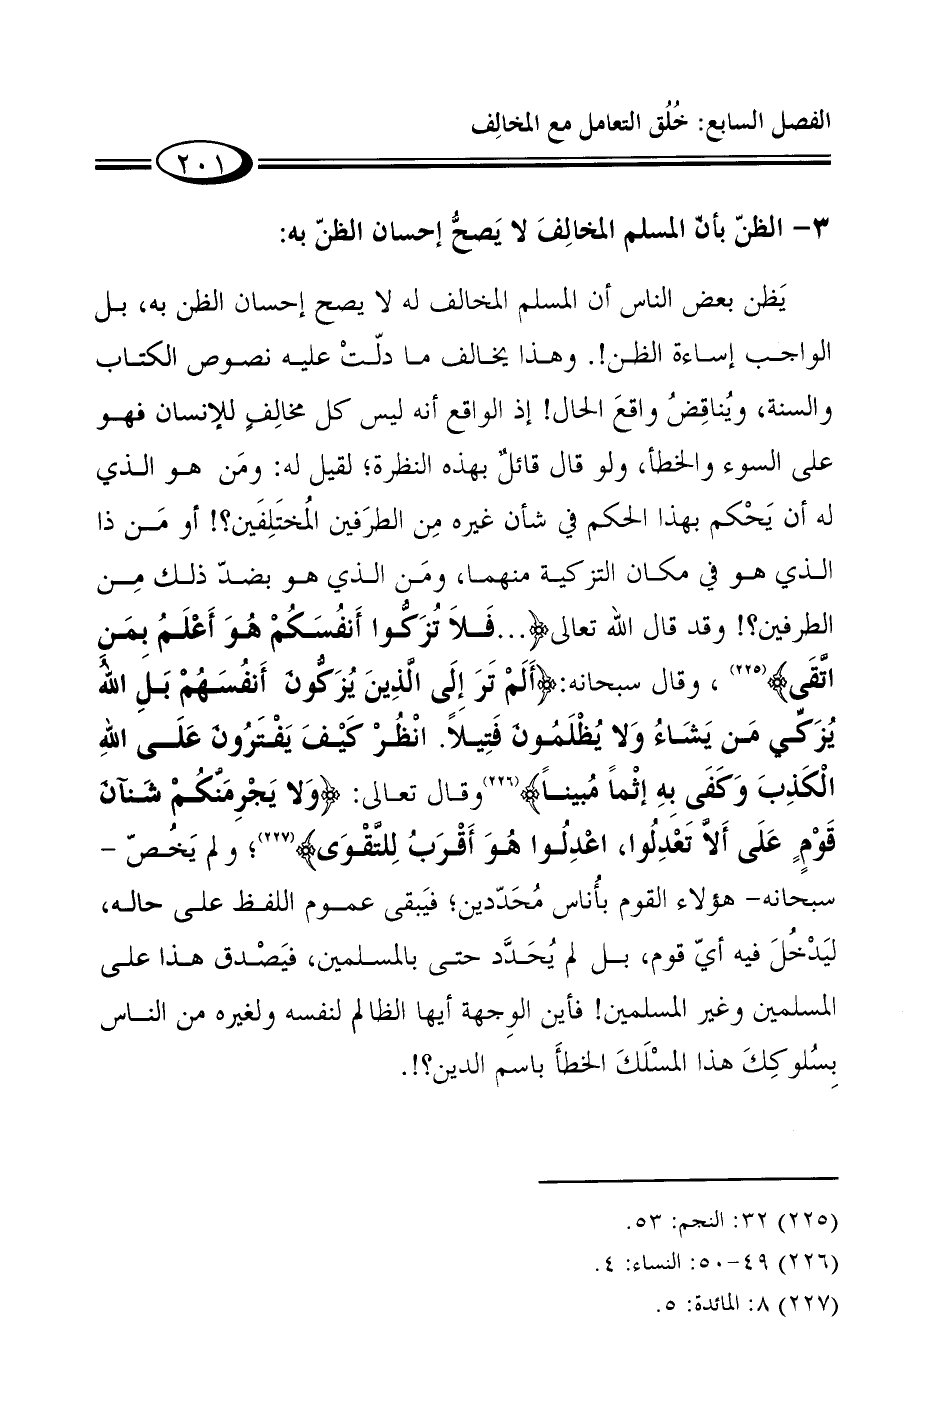 الفصل السابع: خُلُق التعامل مع المخالِف
٢٠١
٣- الظنّ بأنّ المسلم المخالِفَ لا يَصحُّ إحسان الظنّ به:
يَظن بعض الناس أن المسلم المخالف له لا يصح إحسان الظن به، بل
الواجب إساءة الظن!. وهذا يخالف ما دلّتْ عليه نصوص الكتاب
والسنة، ويُناقِضُ واقعَ الحال! إذ الواقع أنه ليس كل مخالِفٍ للإنسان فهو
على السوء والخطأ، ولو قال قائلٌ بهذه النظرة؛ لقيل له: ومَن هو الذي
له أن يَحْكم بهذا الحكم في شأن غيره مِن الطرَفين المُختَلِفَين؟! أو مَن ذا
الذي هو في مكان التزكية منهما، ومَن الذي هو بضدّ ذلك مِن
الطرفين؟! وقد قال الله تعالى﴿...فَلاَ تُزَكُّوا أَنفُسَكُمْ هُوَ أَعْلَمُ بِمَنِ
اتَّقَى﴾(٢٢٥) ، وقال سبحانه:﴿أَلَمْ تَرَ إِلَى الَّذِينَ يُزَكُّونَ أَنفُسَهُمْ بَلِ اللهُ
يُزَكِّي مَن يَشَاءُ وَلا يُظْلَمُونَ فَتِيلاً. انْظُرْ كَيْفَ يَفْتَرُونَ عَلَى اللهِ
الْكَذِبَ وَكَفَى بِهِ إِثْماً مُبيناً﴾(٢٢٦)وقال تعالى: ﴿وَلا يَجْرِمَنَّكُمْ شَنآنُ
قَوْمٍ عَلَى أَلاَّ تَعْدِلُوا، اعْدِلُوا هُوَ أَقْرَبُ لِلتَّقْوَى﴾(٢٢٧)؛ ولم يَخُصّ -
سبحانه- هؤلاء القوم بأُناس مُحَدّدين؛ فيَبقى عموم اللفظ على حاله،
ليَدْخُلَ فيه أيّ قوم، بل لم يُحَدَّد حتى بالمسلمين، فيَصْدق هذا على
المسلمين وغير المسلمين! فأين الوِجهة أيها الظالم لنفسه ولغيره من الناس
بِسُلوكِكَ هذا المسْلَكَ الخطأَ باسم الدين؟!.
(٢٢٥) ٣٢: النجم: ٥٣.
(٢٢٦) ٤٩-٥٠: النساء: ٤.
(٢٢٧) ٨: المائدة: ٥.